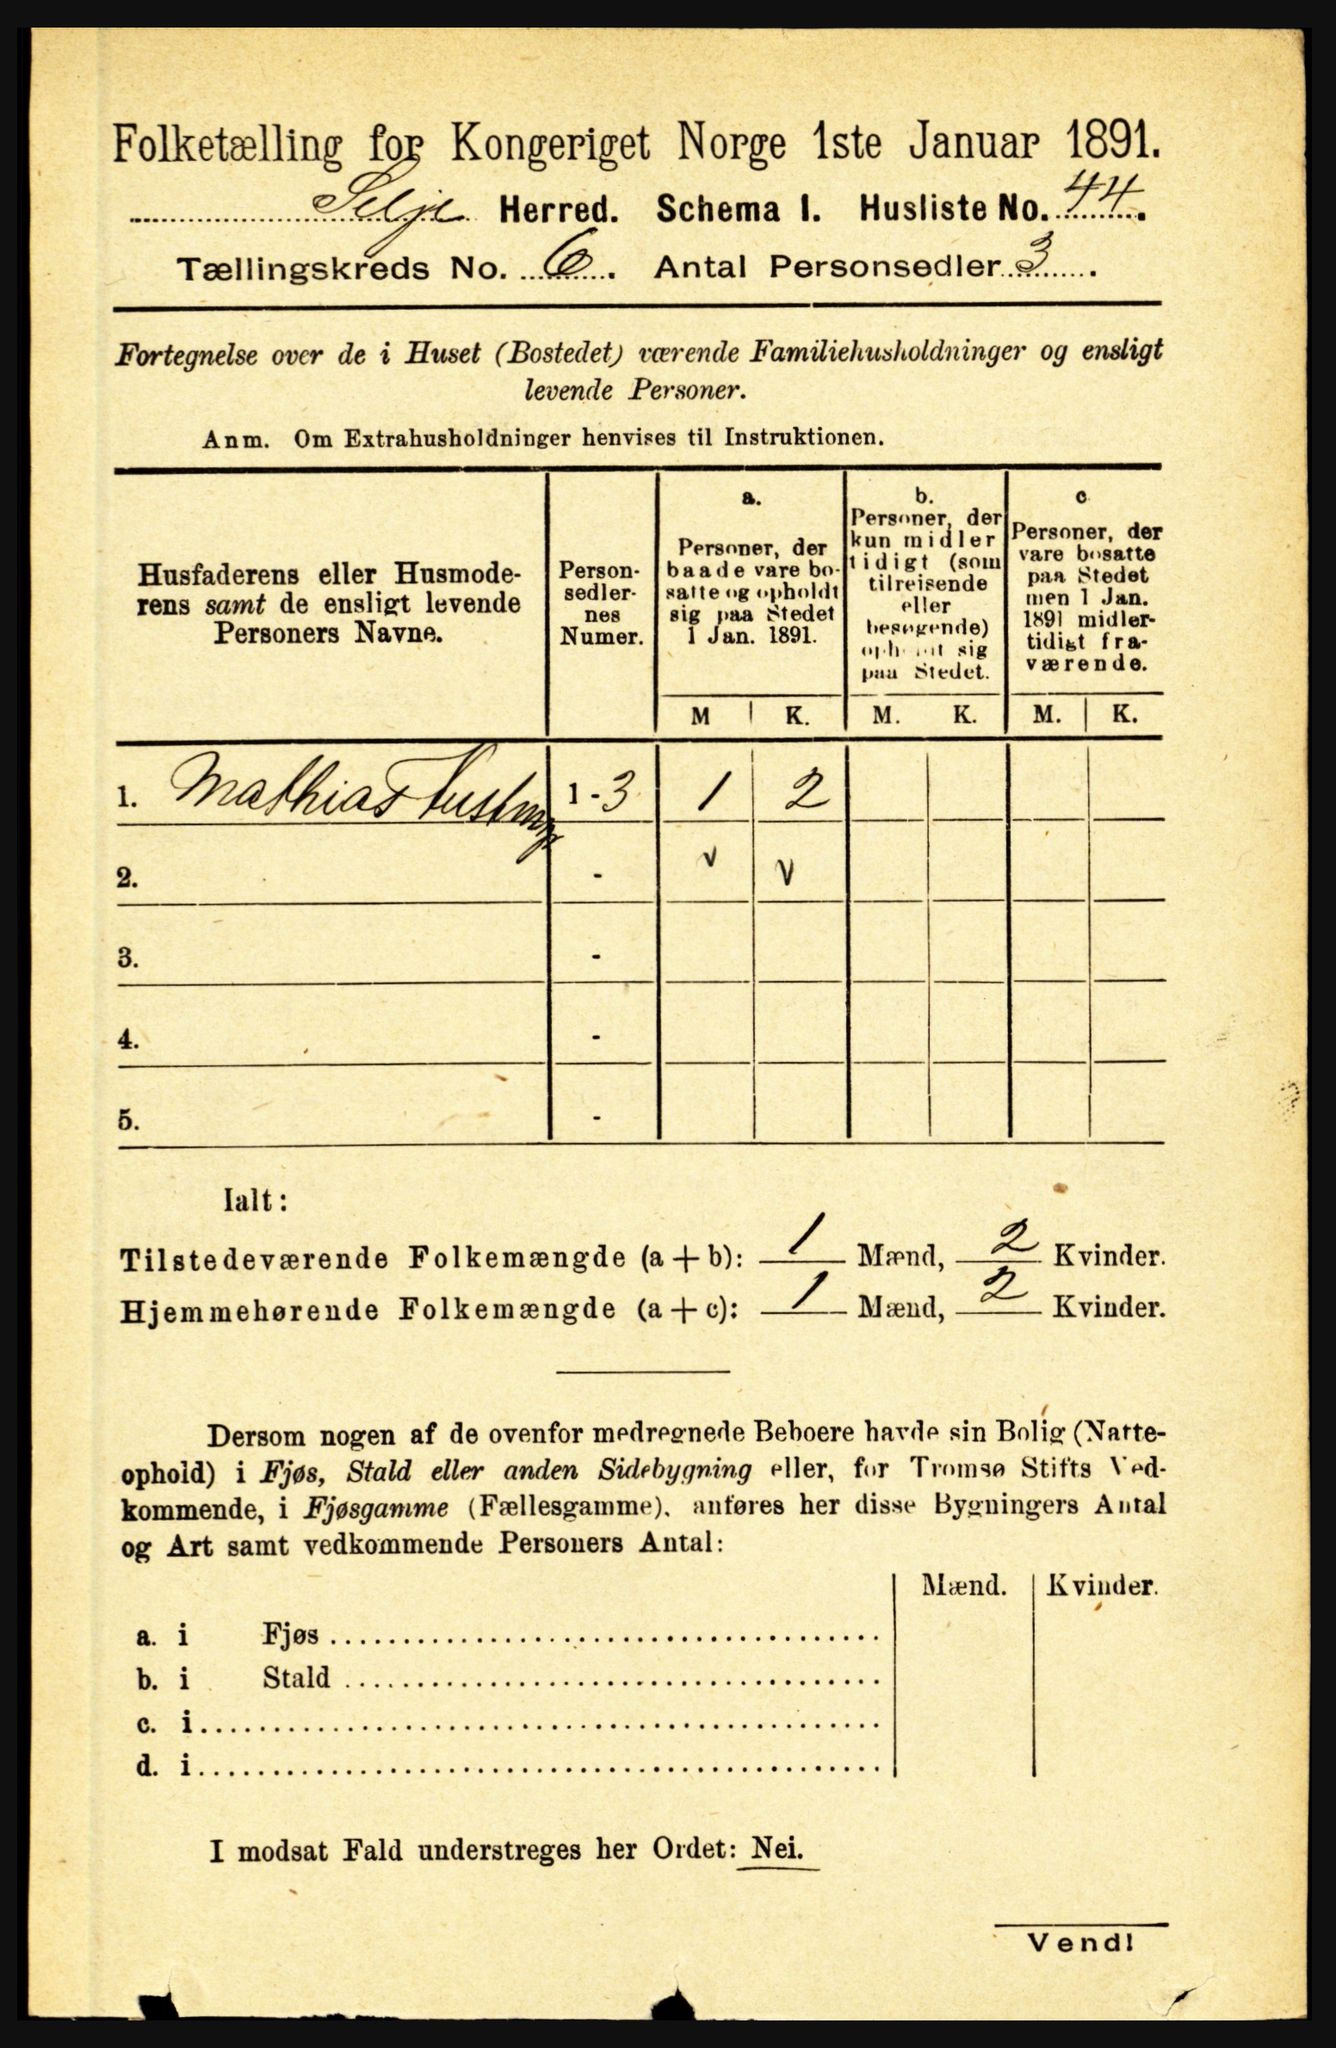 Folketælling for Kongeriget Norge 1ste Januar 1891.
Selje Herred. Schema I. Husliste No. 44.
Tællingskreds No. 6. Antal Personsedler 3.
Fortegnelse over de i Huset (Bostedet) værende Familiehusholdninger og ensligt
levende Personer.
Anm. Om Extrahusholdninger henvises til Instruktionen.
Husfaderens eller Husmode-
rens samt de ensligt levende
Personers Navne.
Person-
sedler-
nes
Numer.
a.
Personer, der
baade vare bo-
satte og opholdt
sig paa Stedet
1 Jan. 1891.
b.
Personer, der
kun midler
tidigt (som
tilreisende
eller
besøgende)
opholdt sig
paa Stedet.
c
Personer, der
vare bosatte
paa Stedet
men 1 Jan.
1891 midler-
tidigt fra-
værende.
M K. M. K. M. K.
1. Mathias 1-3 1 2
2. - v v
3. -
4. -
5. -
Ialt:
Tilstedeværende Folkemængde (a + b): 1 Mænd, 2 Kvinder.
Hjemmehørende Folkemængde (a + c): 1 Mænd, 2 Kvinder.
Dersom nogen af de ovenfor medregnede Beboere havde sin Bolig (Natte-
ophold) i Fjøs, Stald eller anden Sidebygning eller, for Tromsø Stifts Ved-
kommende, i Fjøsgamme (Fællesgamme), anføres her disse Bygningers Antal
og Art samt vedkommende Personers Antal:
Mænd. Kvinder.
a. i Fjøs
b. i Stald
c. i
d. i
I modsat Fald understreges her Ordet: Nei.
Vend!